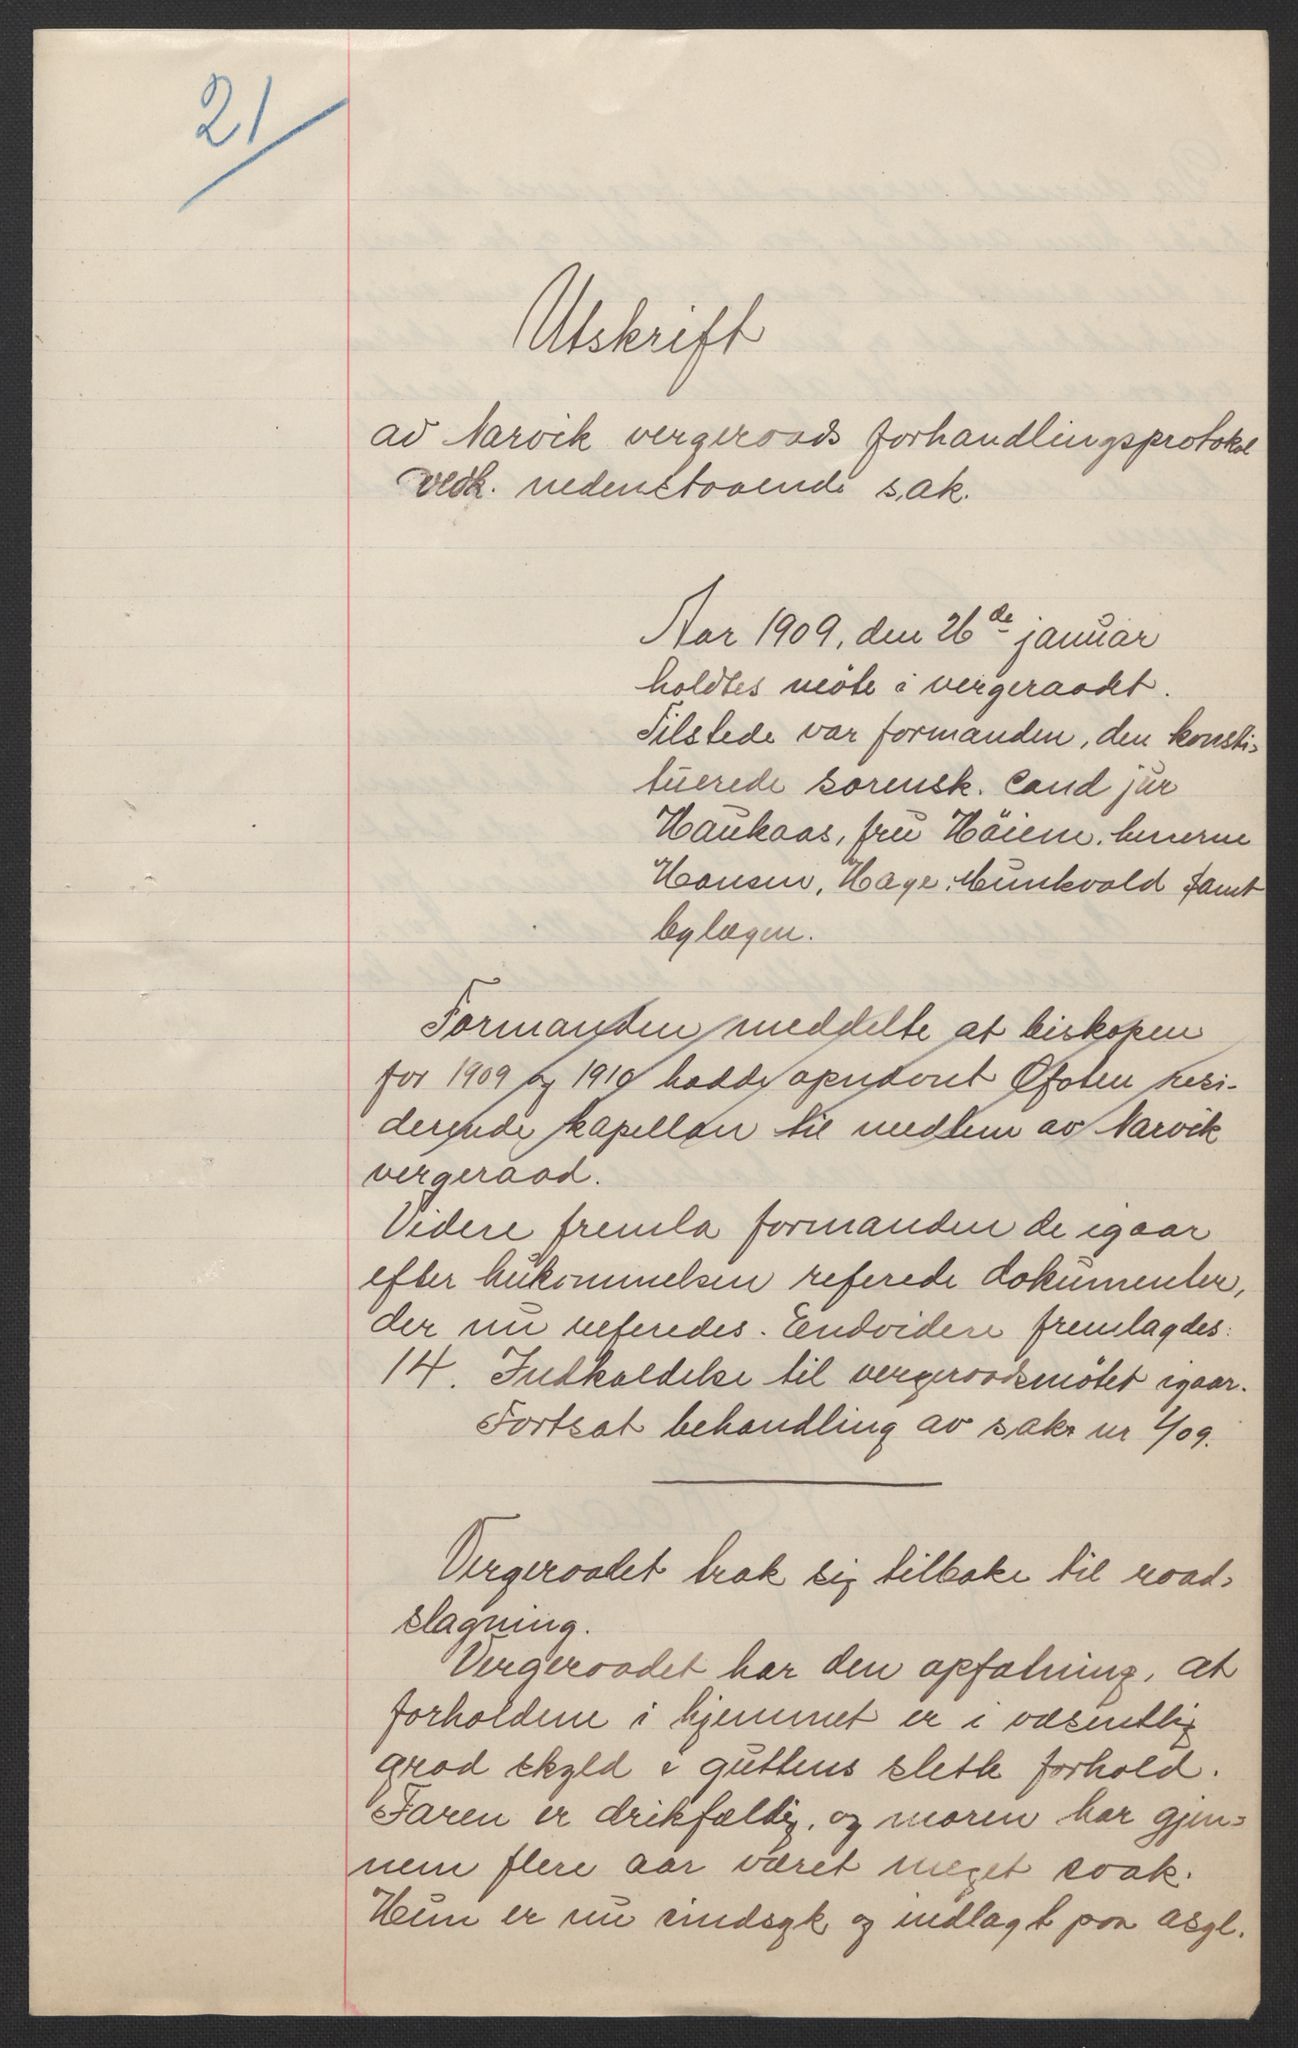 21
Utskrift
av Narvik vergeraads forhandlingsprotokol
vedk. nedenstaaende sak.
Aar 1909, den 26de januar
holdtes møte i vergeraadet.
Tilstede var formanden, den konsti-
tuerede sorensk. Cand jur
Haukaas, fru Höiem, herrerne
Hansen, Hage, Munkvold samt
bylægen.
Formanden meddelte at biskopen
for 1909 og 1910 hadde opnævnt Ofoten resi-
derende kapellan til medlem av Narvik
vergeraad.
Videre fremla formanden de igaar
efter hukommelsen referede dokumenter,
der nu referedes. Endvidere fremlagdes:
14. Indkaldelse til vergeraadsmøtet igaar.
Fortsat behandling av sak nr 1/09.
Vergeraadet trak sig tilbake til raad-
slagning.
Vergeraadet har den opfatning, at
forholdene i hjemmet er i væsentlig
grad skyld i guttens slette forhold.
Faren er drikfældig, og moren har gjen-
nem flere aar været meget svak.
Hun er nu sindsyk og indlagt paa asyl.